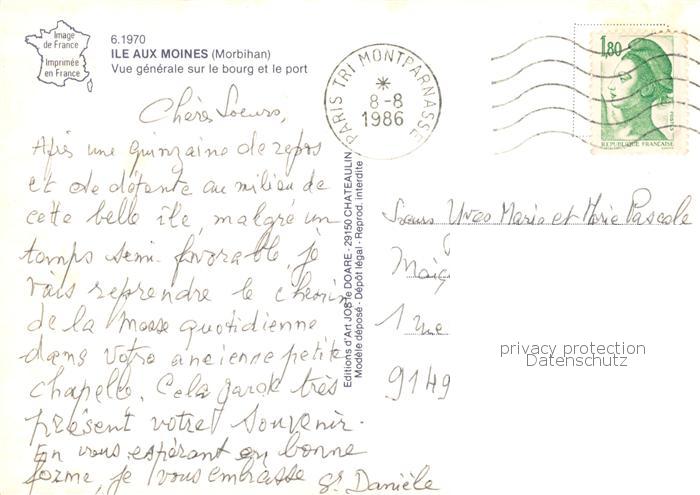 Image
de France
Imprimée
en France
6.1970
ILE AUX MOINES (Morbihan)
Vue générale sur le bourg et le port
PARIS TRI MONTPARNASSE
8-8
1986
1,80
REPUBLIQUE FRANÇAISE
Chères Soeurs,
Après une quinzaine de repos
et de détente au milieu de
cette belle île, malgré un
temps semi-favorable, je
vais reprendre le chemin
de la messe quotidienne
dans votre ancienne petite
chapelle. Cela garde très
présent votre souvenir.
En vous espérant en bonne
forme, je vous embrasse
Sr Danièle
Editions d'Art JOS le DOARE - 29150 CHATEAULIN
Modèle déposé - Dépôt légal - Reprod. interdite
Soeurs Yves Maria et Marie Pascale
1 rue
9149
privacy protection
Datenschutz